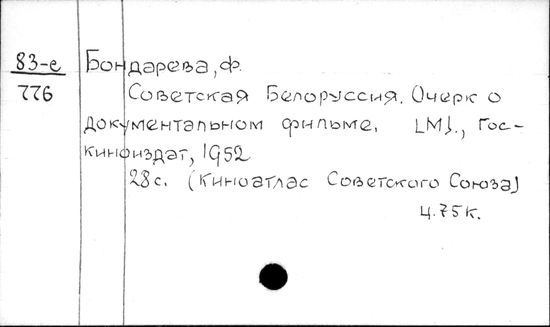 83-е Бондарева, Ф.
776 Советская Белоруссия. Очерк о
документальном фильме. [М]., Гос-
киноиздат, 1952
28 с. (Киноатлас Советского Союза)
ц. 75 к.